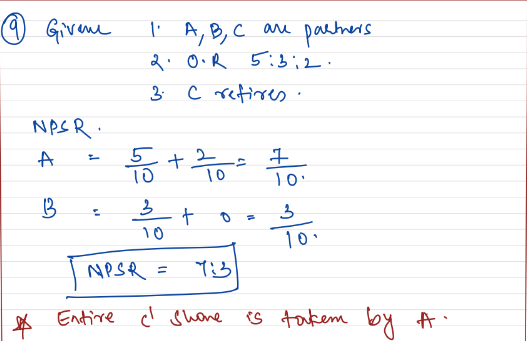 ⑨ Given 1. A, B, C are partners
2. O.R 5:3:2.
3. C retires.
NPSR.
A = 5/10 + 2/10 = 7/10.
B = 3/10 + 0 = 3/10.
NPSR = 7:3
* Entire C' share is taken by A.